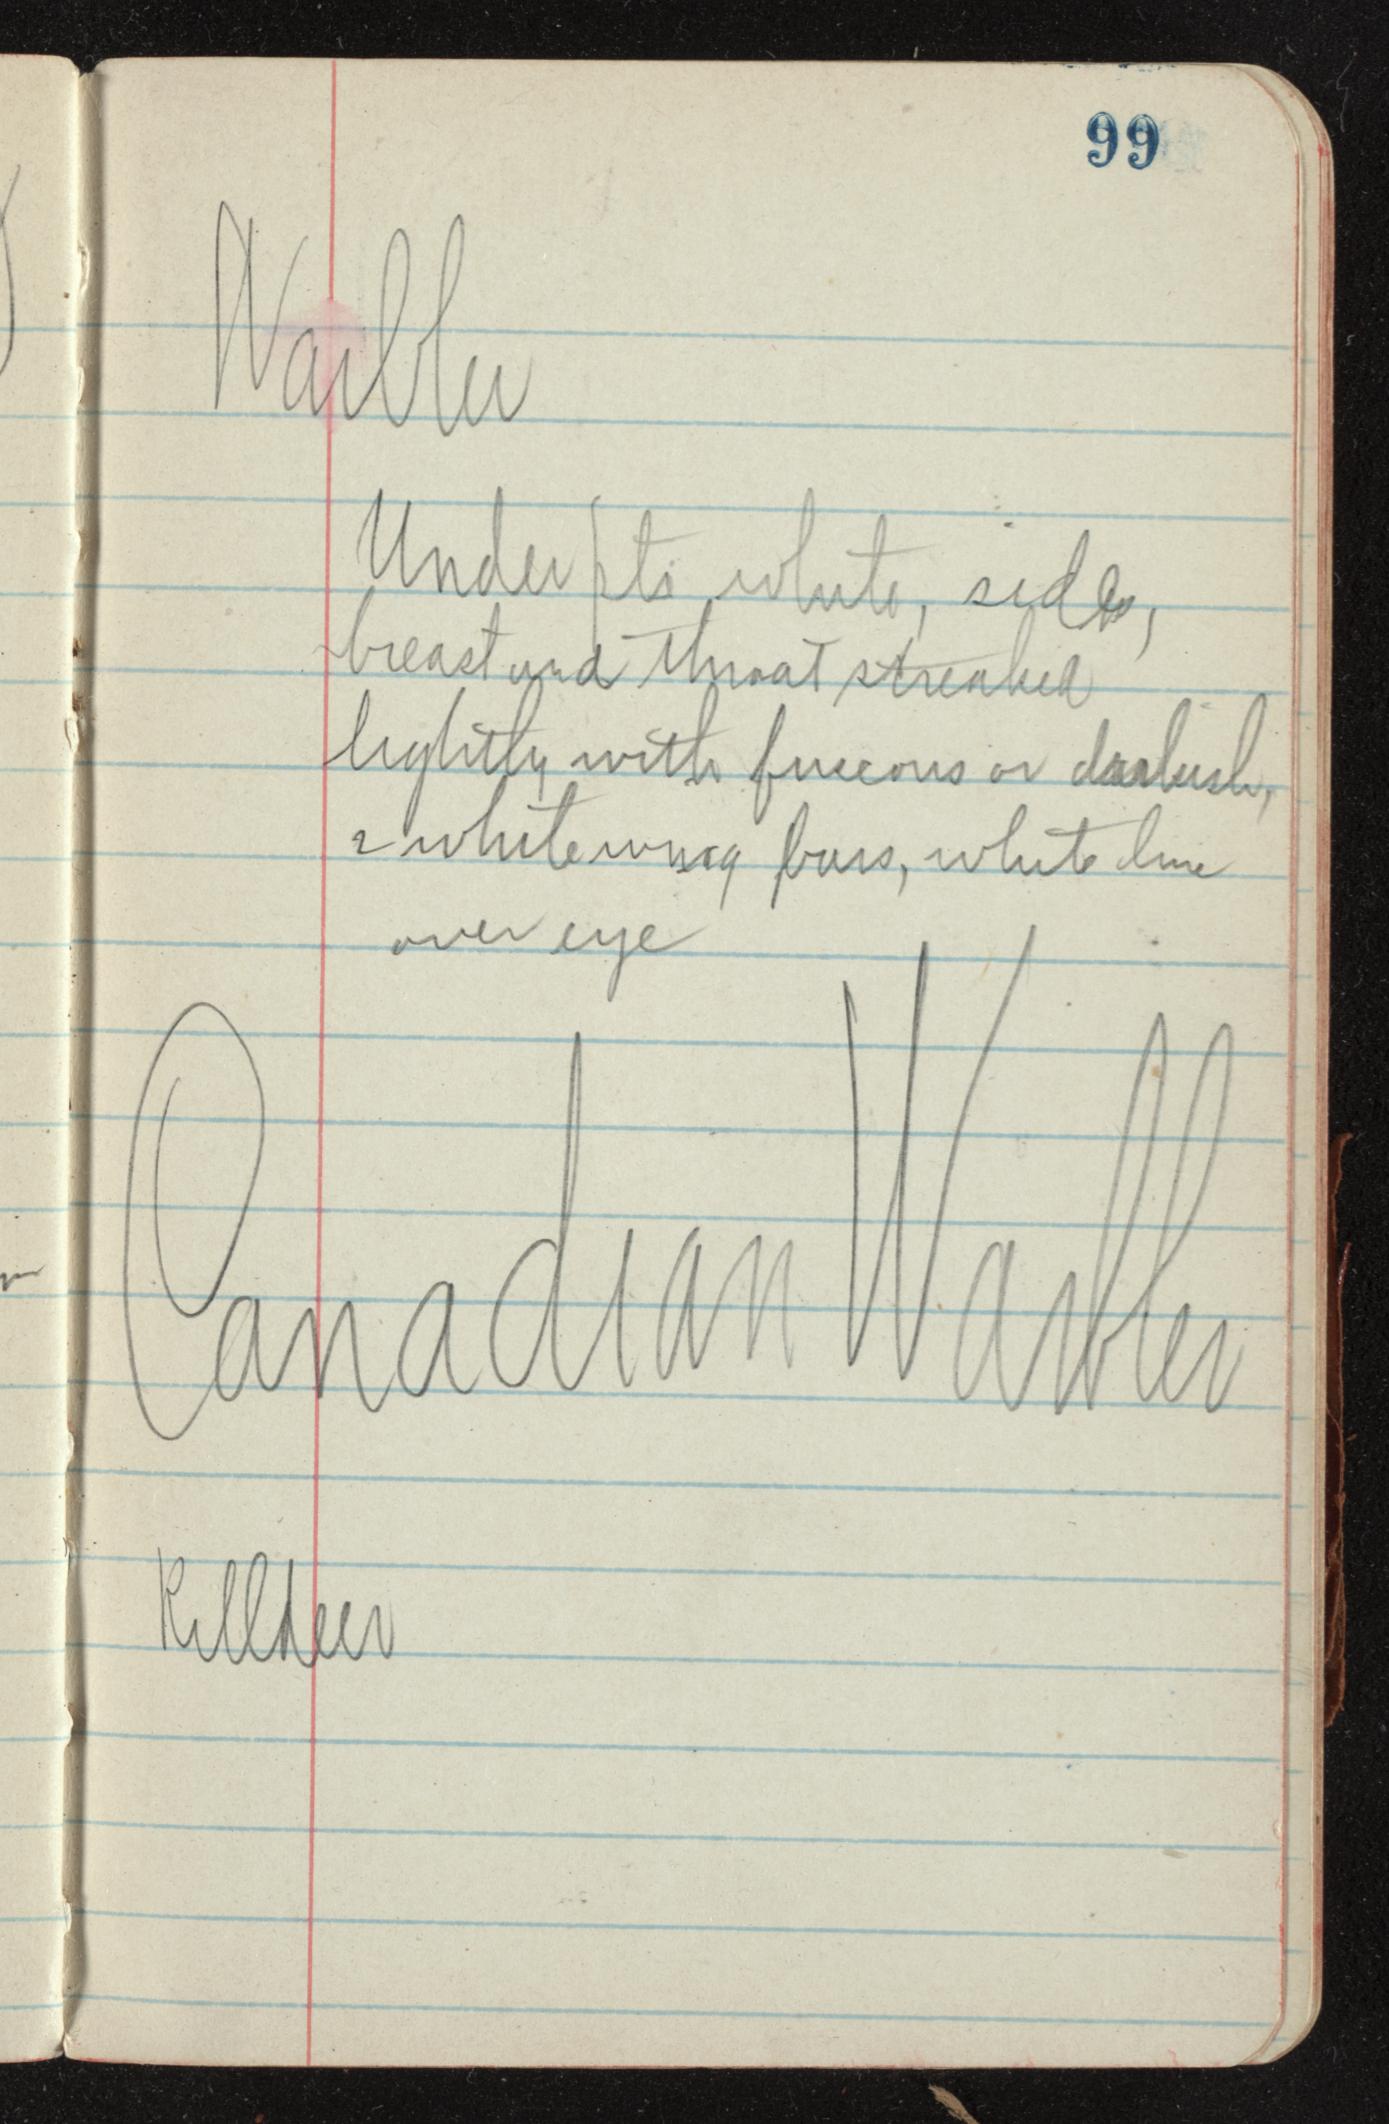 99
Warbler
Under pts white, sides,
breast and throat streaked
lightly with fuscous or darkish,
2 white wing bars, white line
over eye
Canadian Warbler
Killdeer